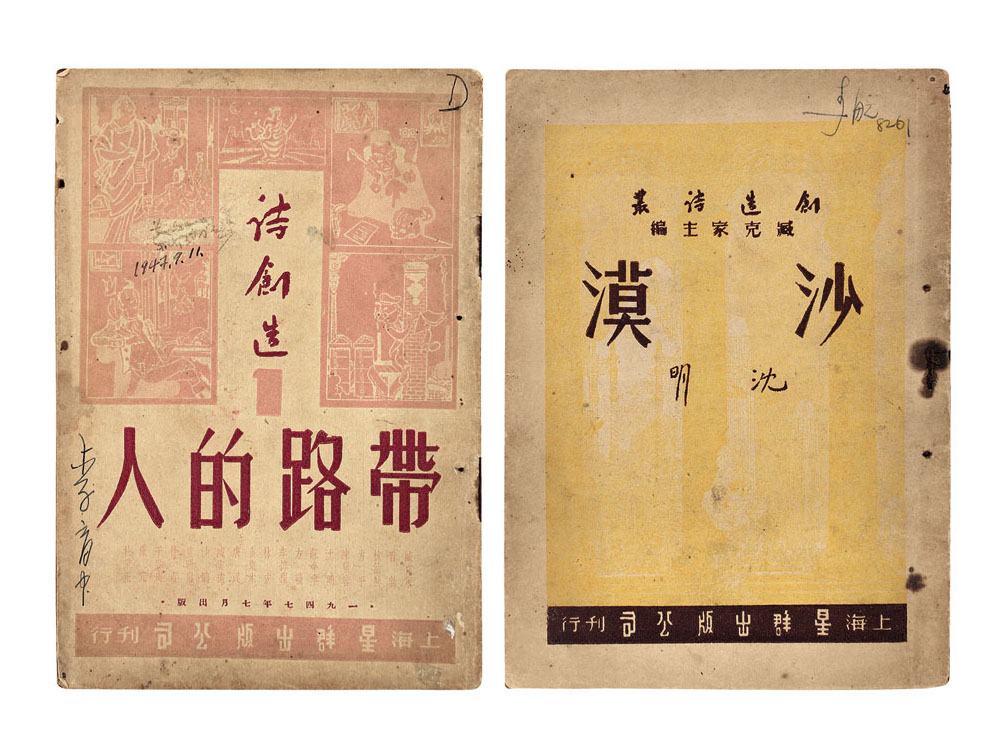 D
1947.9.11.
詩創造
1
帶路的人
李育中
·一九四七年七月出版·
上海星群出版公司刊行
8201
創造詩叢
臧克家主編
沙漠
沈明
上海星群出版公司刊行